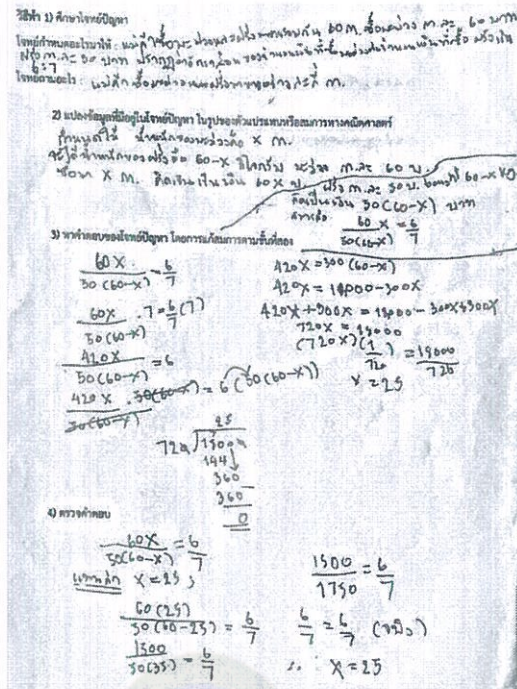 วิธีทำ 1) ศึกษาโจทย์ปัญหา
โจทย์กำหนดอะไรมาให้ : แม่ค้าซื้อมะม่วงและฝรั่งมารวมกัน 60 m. ซื้อมะม่วง m. ละ 60 บาท
ฝรั่ง m. ละ 50 บาท
6:7
โจทย์ถามอะไร : แม่ค้า ซื้อมะม่วงและฝรั่งมาอย่างละกี่ m.
2) แปลงข้อมูลที่มีอยู่ในโจทย์ปัญหา ในรูปของตัวแปรแทนหรือสมการทางคณิตศาสตร์
กำหนดให้ น้ำหนักของมะม่วงคือ x m.
จะได้น้ำหนักของฝรั่งคือ 60-x กิโลกรัม มะม่วง m.ละ 60 บ.
ซื้อมา x m. คิดเป็นเงิน 60x บ. ฝรั่ง m. ละ 50 บ. 60-x KG
คิดเป็นเงิน 50(60-x) บาท
สมการคือ 60x/50(60-x) = 6/7
3) หาคำตอบของโจทย์ปัญหา โดยการแก้สมการตามขั้นที่สอง
60x/50(60-x) = 6/7
60x/50(60-x) · 7 = 6/7 (7)
420x/50(60-x) = 6
420x/50(60-x) · 50(60-x) = 6(50(60-x))
420x = 300(60-x)
420x = 18000-300x
420x+300x = 18000-300x+300x
720x = 18000
(720x)(1/720) = 18000/720
x = 25
25
720)18000
144
360
360
0
4) ตรวจคำตอบ
60x/50(60-x) = 6/7
แทนค่า x = 25
60(25)/50(60-25) = 6/7
1500/50(35) = 6/7
1500/1750 = 6/7
6/7 = 6/7 (จริง)
∴ x = 25